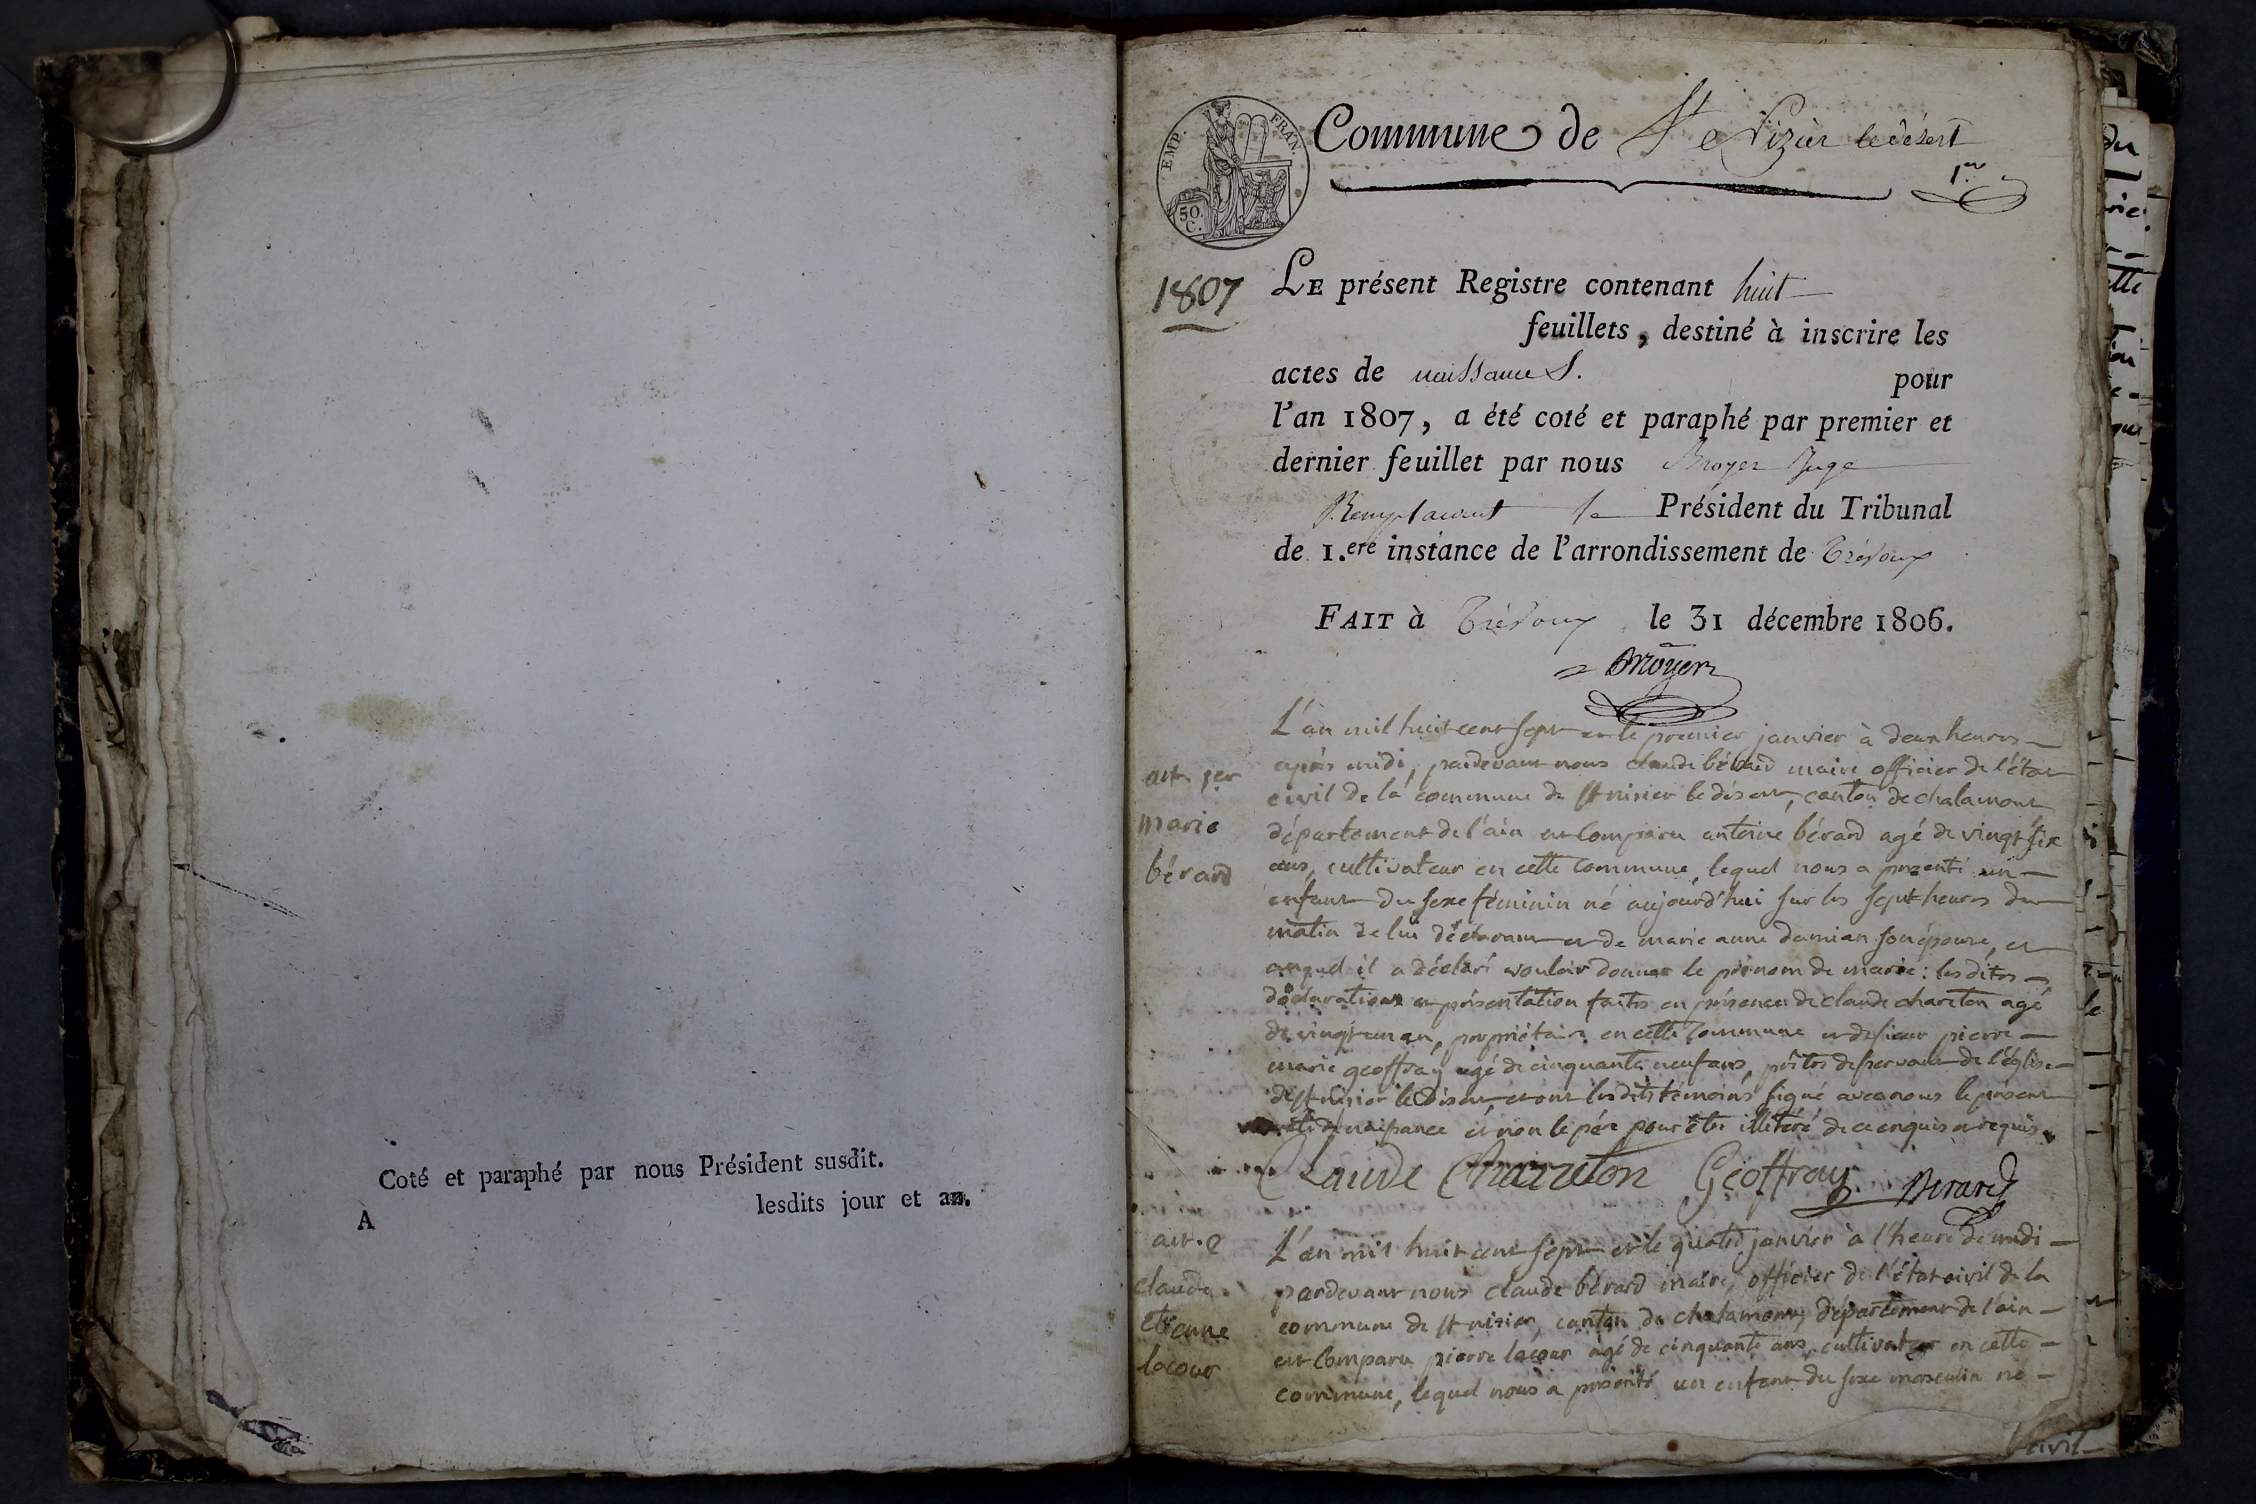 Coté et paraphé par nous Président susdit.
lesdits jour et an.
A
EMP. FRAN.
50.
C.
Commune de St Nizier le désert
1er
1807
LE présent Registre contenant huit
feuillets, destiné à inscrire les
actes de naissances. pour
l'an 1807, a été coté et paraphé par premier et
dernier feuillet par nous Broyer Juge
Remplacant le Président du Tribunal
de 1.ere instance de l'arrondissement de Trévoux
FAIT à Trévoux le 31 décembre 1806.
Broyer
art. 1er
marie
bérard
L'an mil huit cent sept et le premier janvier à deux heures
après midi, pardevant nous claude bérard maire officier de l'état
civil de la commune de st nisier le désert, canton de chalamont
département de l'ain est comparu antoine bérard agé de vingt six
ans, cultivateur en cette commune, lequel nous a présenté un
enfant du sexe féminin né aujourd'hui sur les sept heures du
matin de lui déclarant et de marie anne damian son épouse, et
auquel il a déclaré vouloir donner le prénom de marie: les dites
déclaration et présentation faites en présence de claude chareton agé
de vingt un an, propriétaire en cette commune et de sieur pierre
marie geoffray agé de cinquante neuf ans, prêtre desservant de l'église
de st nisier le désert, et ont les dits témoins signé avec nous le présent
acte de naissance et non le père pour être illétéré de ce enquis et requis.
Claude Charreton Geoffray Berard
art. 2
claude
etienne
lacour
L'an mil huit cent sept et le quatre janvier à l'heure de midi
pardevant nous claude bérard maire, officier de l'état civil de la
commune de st nisier, canton de chalamont, département de l'ain
est comparu pierre lacour agé de cinquante ans, cultivateur en cette
commune, lequel nous a présenté un enfant du sexe masculin né
civil